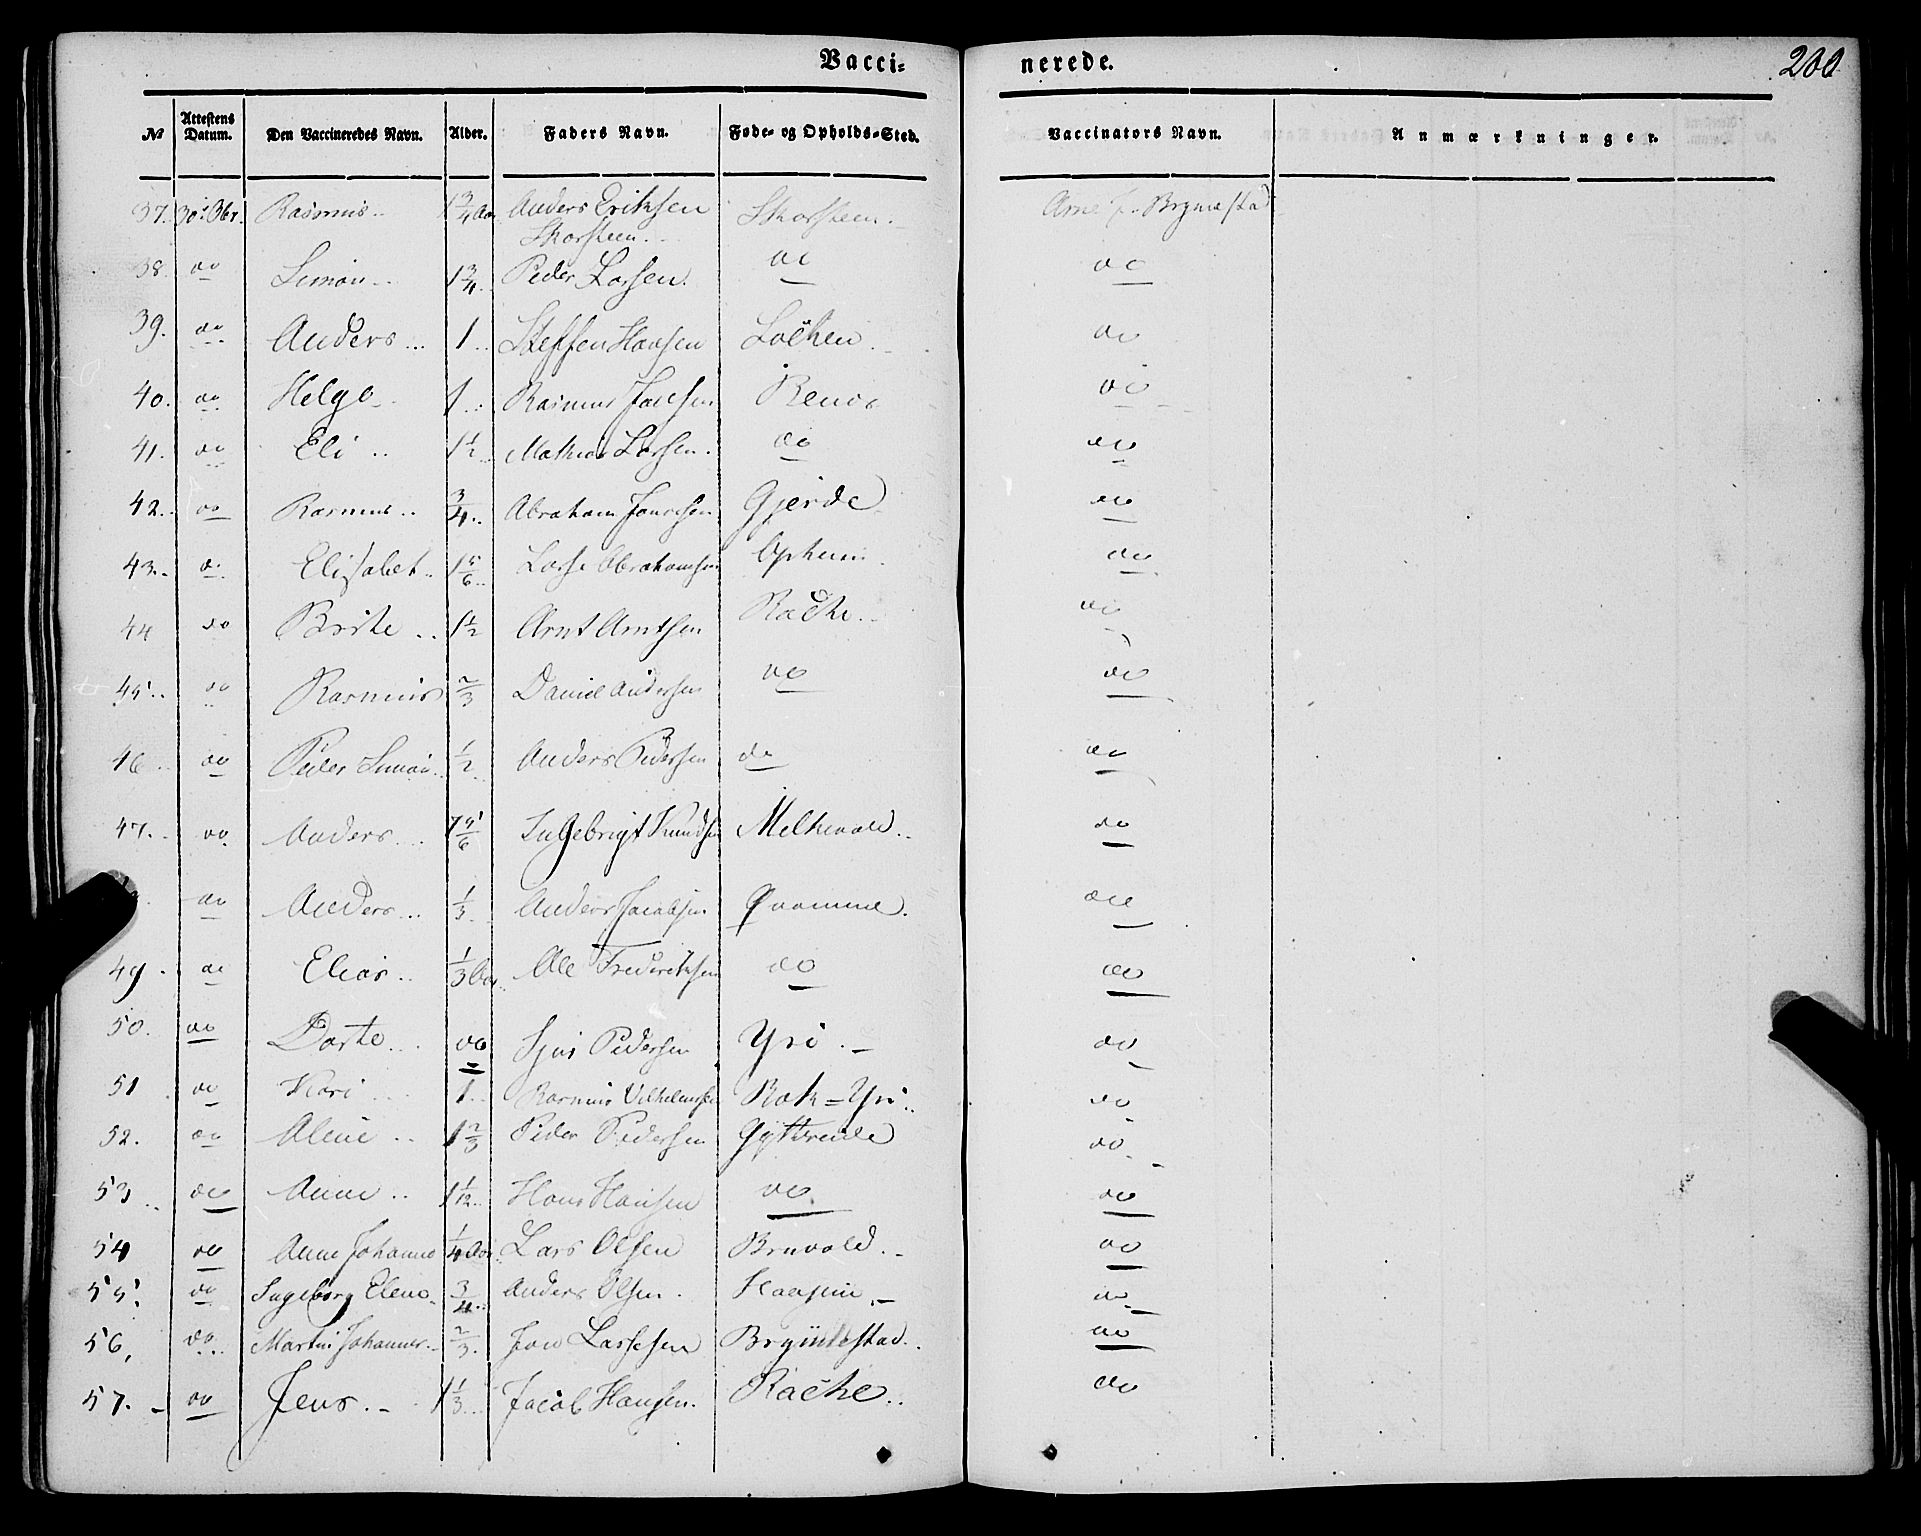 Vacci=
nerede.
200
№ Attestens Datum. Den Vaccineredes Navn. Alder. Faders Navn. Føde- og Opholds-Sted. Vaccinators Navn. Anmærkninger.
37. 30. Rasmus.. 1 3/4 Aar Anders Eriksen Skorsteen. Arne Brynestad
Skorsteen.
38 do Simon.. 1 3/4.. Peder Larsen. do do
39. do Anders... 1.. Steffen Hansen do
40. do Helge.. 1.. Rasmus do
41. do Eli.. 1 1/2 Mathias Larsen. do do
42.. do Rasmus.. 3/4.. Abraham Gjerde do
43.. do Elisabet.. 1 5/6.. Lasse Abrahamsen Opheim do
44 do Brite.. 1 1/2 Arnt Arntsen Rache.. do
45.. do Rasmus 2/3 Daniel Andersen do do
46.. do Peder Simon.. 1/2 Anders Pedersen do do
47.. do Anders... 5/6 Ingebrigt Knudsen Melkevold.. do
do Anders... 1/3 Anders Jacobsen Qvamme. do
49. do Elias.. 1/3 Aar. Ole Frederiksen do do
50. do Dorte... do Sjur Pedersen Yri.- do
51. do Kari... 1.. Rasmus Vilhelmsen Rak=Yri.. do
52. do Alene.. 1 2/3 Peder Pedersen Gyttreide do.
53.. do Anne.. 1 1/12.. Hans Hansen do do
54 do Anne Johanne 1/4 Aar. Lars Olsen Bruvold.- do
55. do Ingeborg Elene. 3/4.. Anders Olsen. do
56, do... Martin Johannes.. 2/3. Jon Lassesen Bryniestad.. do
57.- do Jens.- 1 1/3... Jacob Hansen. Rache.. do